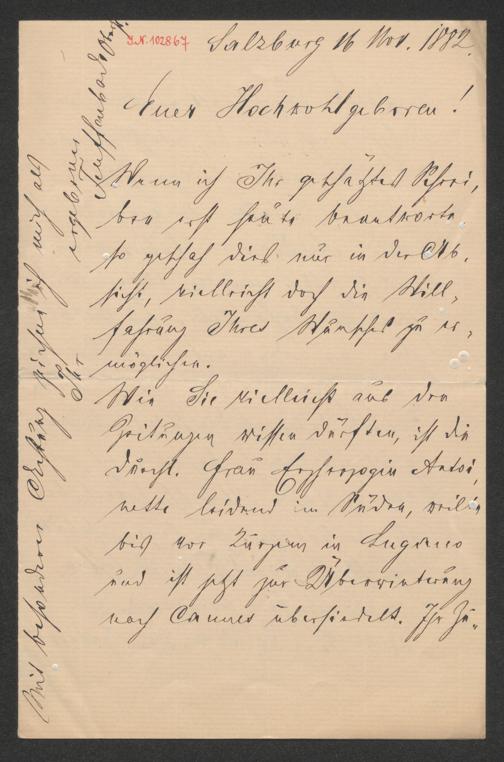 I.N. 102867
Salzburg 16 Nov. 1882.
Euer Hochwohlgeboren!
Wenn ich Ihr geschätztes Schrei-
ben erst heute beantworte,
so geschah dies nur in der Ab-
sicht, vielleicht doch die Will-
fahrung Ihres Wunsches zu er-
möglichen.
Wie Sie vielleicht aus den
Zeitungen wissen dürften, ist die
durchl. Frau Erzherzogin Antoi-
nette leidend im Süden, weilte
bis vor Kurzem in Lugano
und ist jetzt zur Überwinterung
nach Cannes übersiedelt. Ihr Zu-
Mit besonderer Achtung zeichne ich mich als
Ihr
ergebener